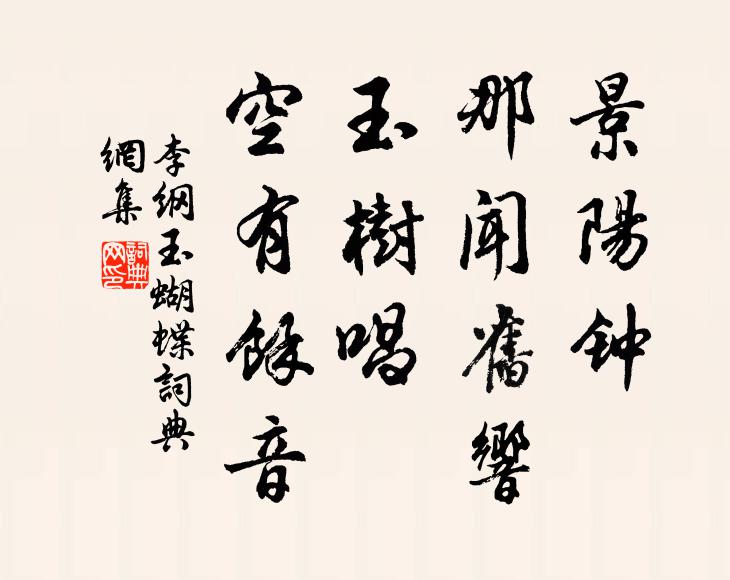 景陽钟
那聞舊響
玉樹唱
空有餘音
李纲玉蝴蝶詞典
網集
詞典
网印